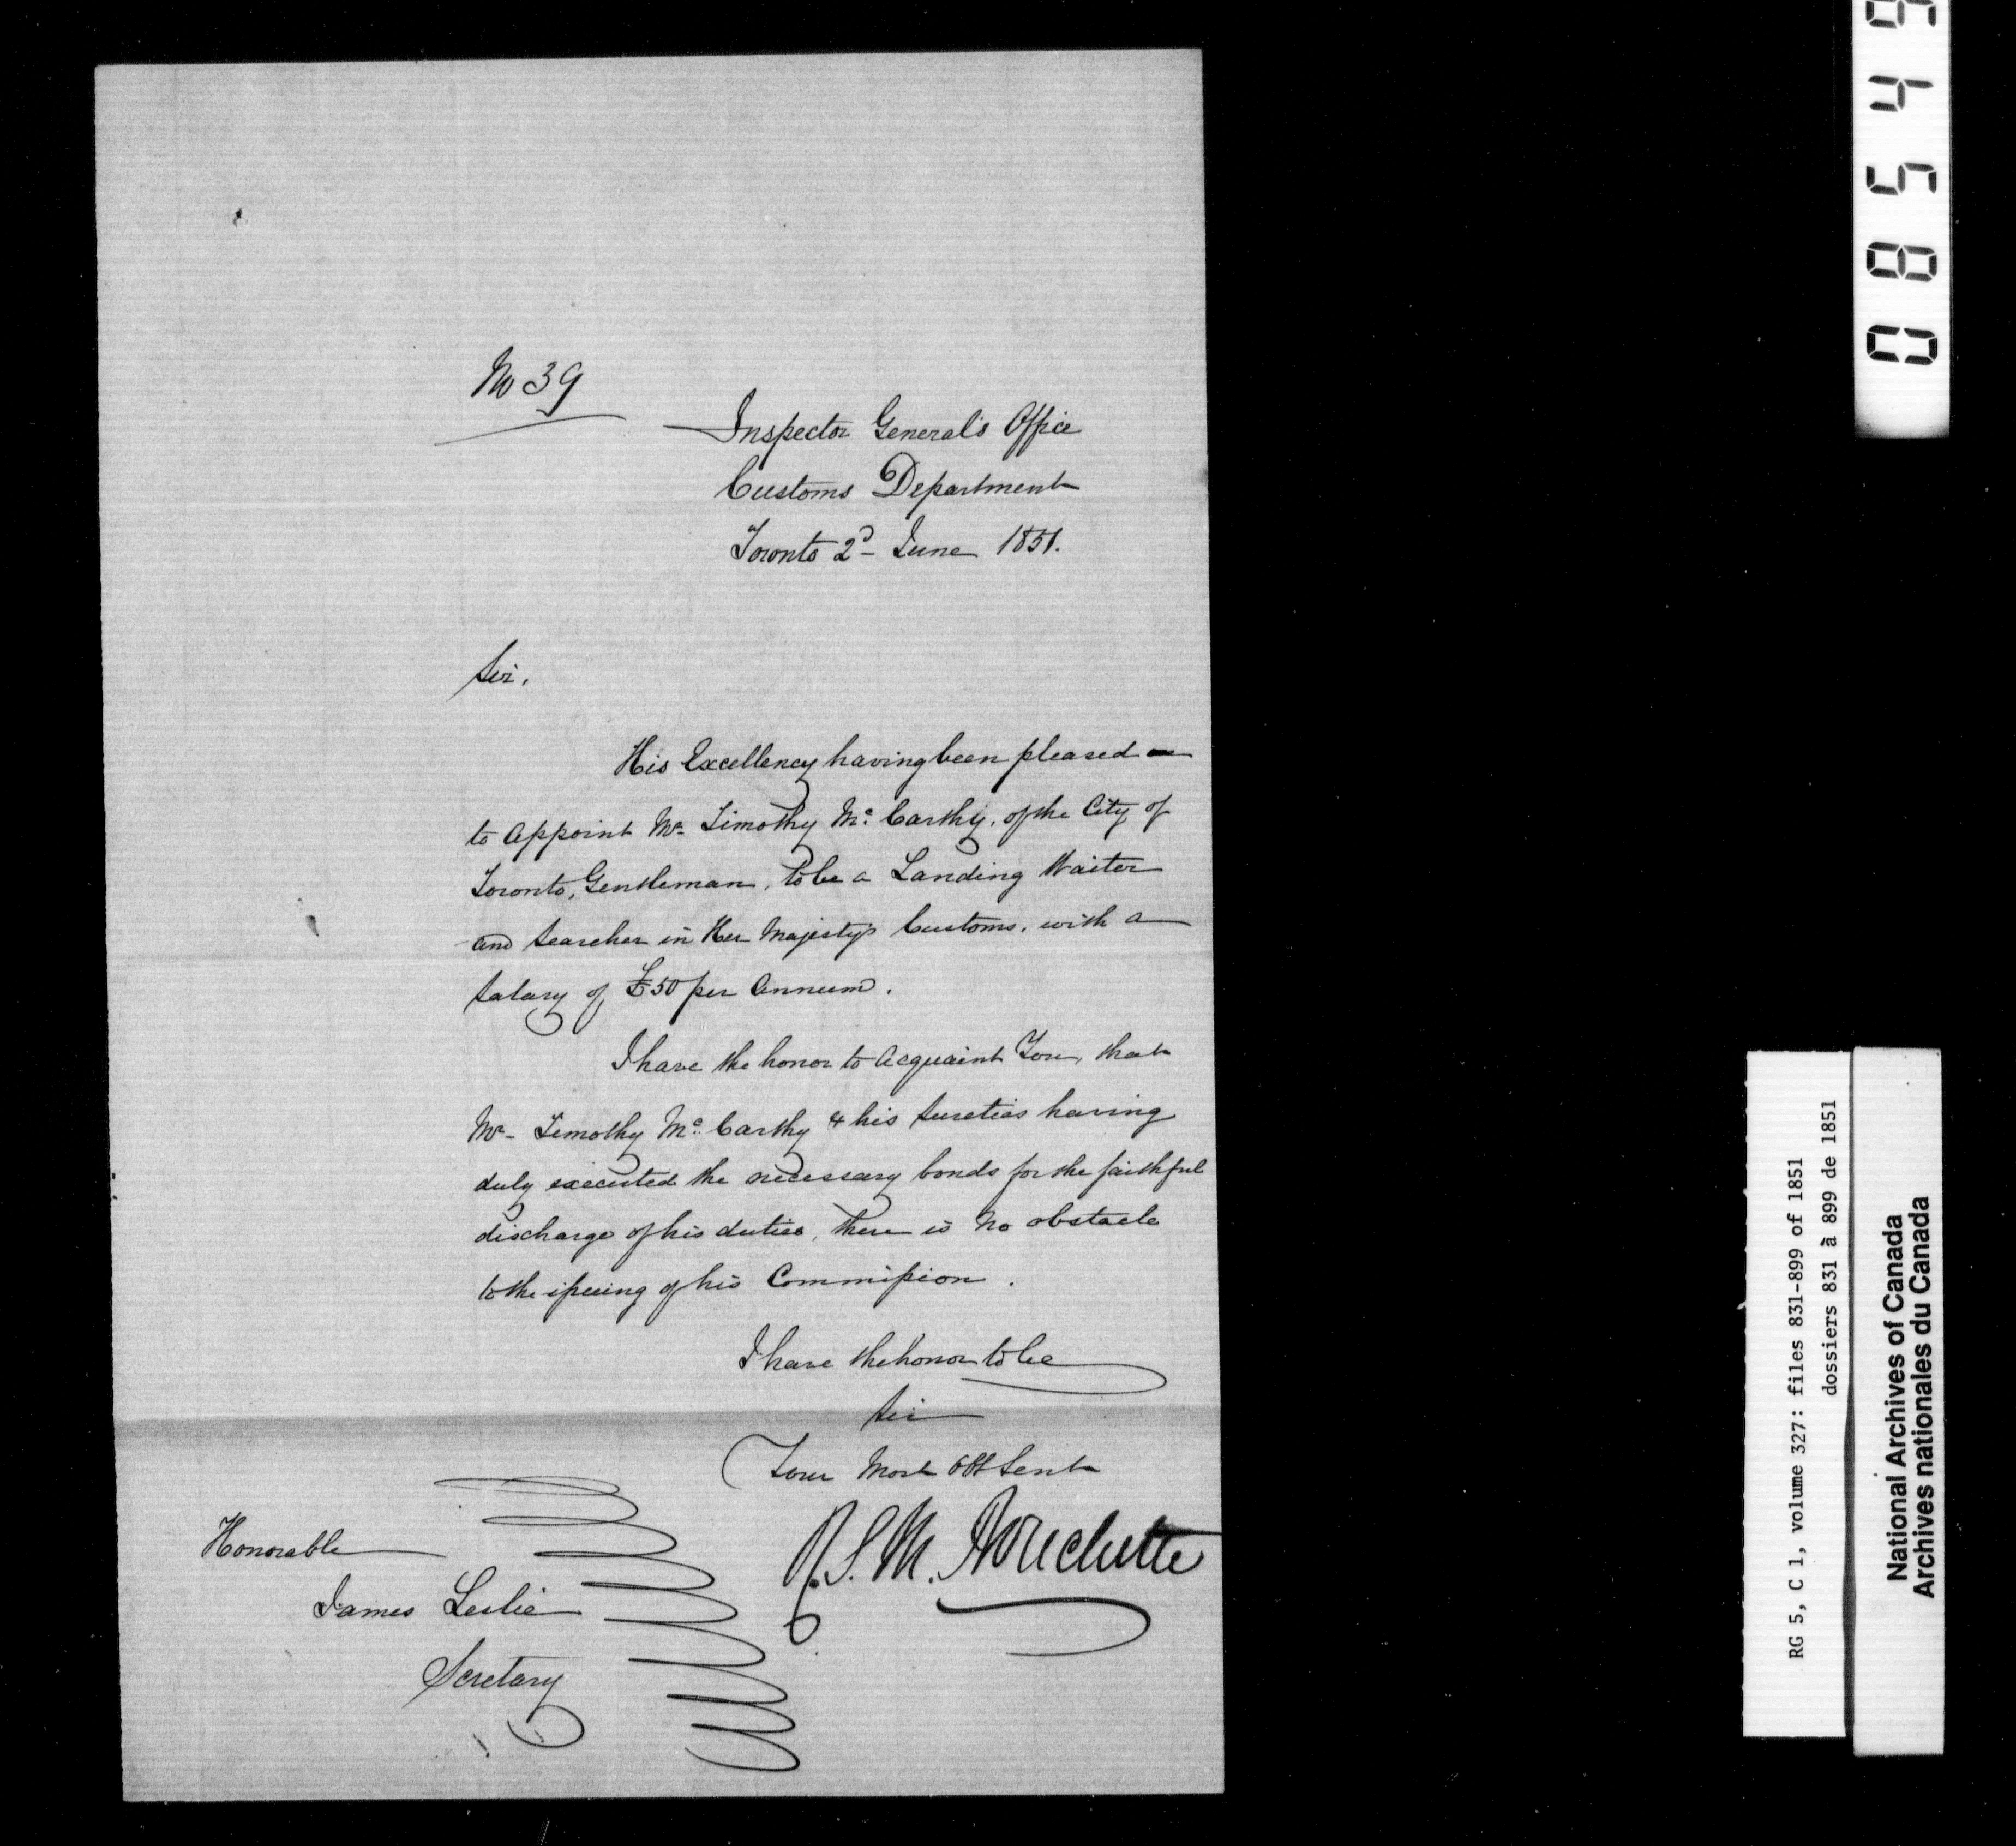 No 39
Inspector General's Office
Customs Department
Toronto 2d June 1851.
Sir,
His Excellency having been pleased
to Appoint Mr Timothy Mc Carthy, of the City of
Toronto, Gentleman, to be a Landing Waiter
and Searcher in Her Majesty's Customs, with a
Salary of £50 per Annum.
I have the honor to Acquaint You, that
Mr Timothy Mc Carthy & his Sureties having
duly executed the necessary bonds for the faithful
discharge of his duties, there is no obstacle
to the issuing of his Commission.
I have the honor to be
Sir
Your Most Obt Servt
R.S.M. Bouchette
Honorable
James Leslie
Secretary
08549
RG 5, C 1, volume 327: files 831-899 of 1851
dossiers 831 à 899 de 1851
National Archives of Canada
Archives nationales du Canada